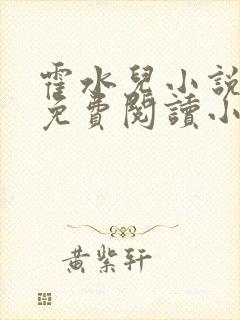 霍水兒小說
免費閱讀小
黃紫軒